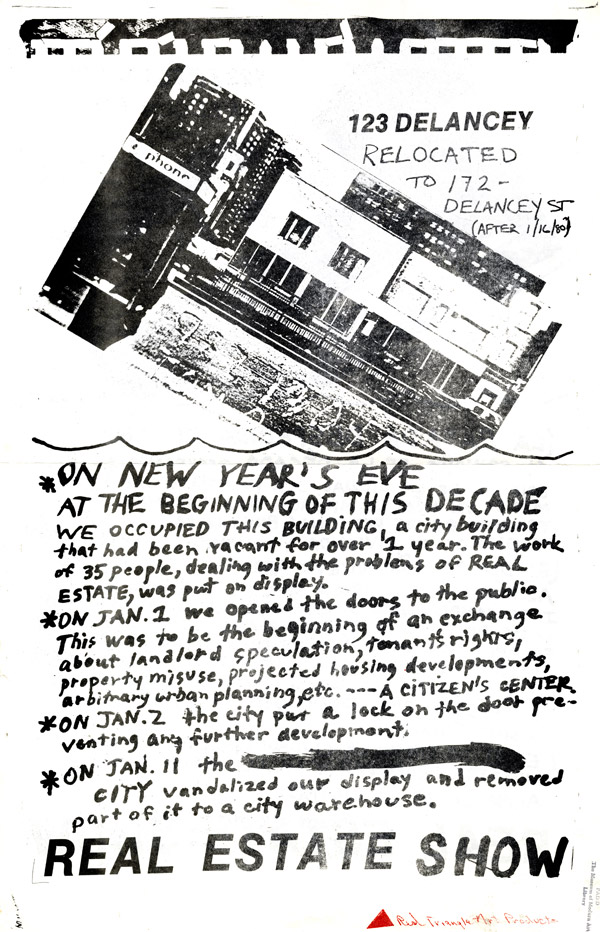 phone
123 DELANCEY
RELOCATED
TO 172 -
DELANCEY ST
(AFTER 1/16/80)
*ON NEW YEAR'S EVE
AT THE BEGINNING OF THIS DECADE
WE OCCUPIED THIS BUILDING, a city building
that had been vacant for over 1 year. The work
of 35 people, dealing with the problems of REAL
ESTATE, was put on display.
*ON JAN. 1 we opened the doors to the public.
This was to be the beginning of an exchange
about landlord speculation, tenants rights,
property misuse, projected housing developments,
arbitrary urban planning, etc. --- A CITIZEN'S CENTER.
*ON JAN. 2 the city put a lock on the door pre-
venting any further development.
*ON JAN. 11 the
CITY vandalized our display and removed
part of it to a city warehouse.
REAL ESTATE SHOW
Red Triangle Art Products
The Museum of Modern Art
Library